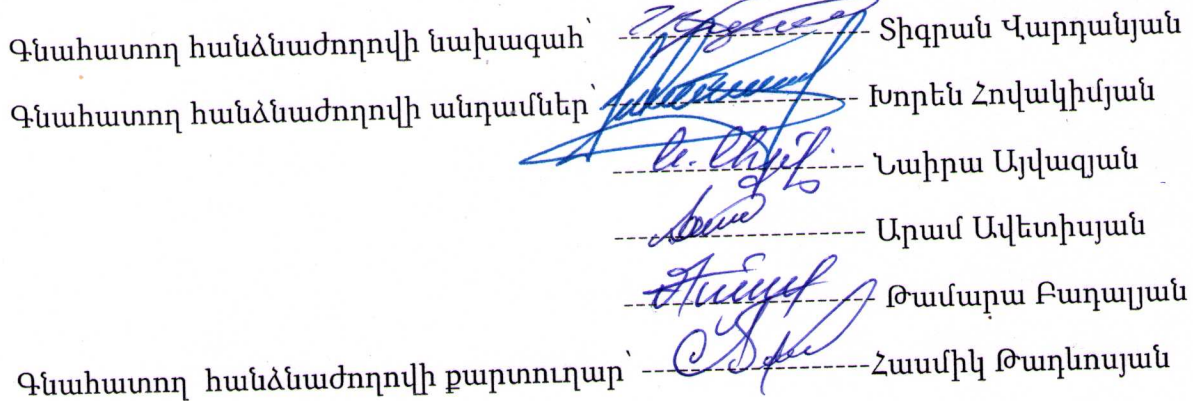 Գնահատող հանձնաժողովի նախագահ՝ ---------------- Տիգրան Վարդանյան
Գնահատող հանձնաժողովի անդամներ՝ ---------------- Խորեն Հովակիմյան
---------------- Նաիրա Այվազյան
---------------- Արամ Ավետիսյան
---------------- Թամարա Բադալյան
Գնահատող հանձնաժողովի քարտուղար՝ ----------------Հասմիկ Թադևոսյան